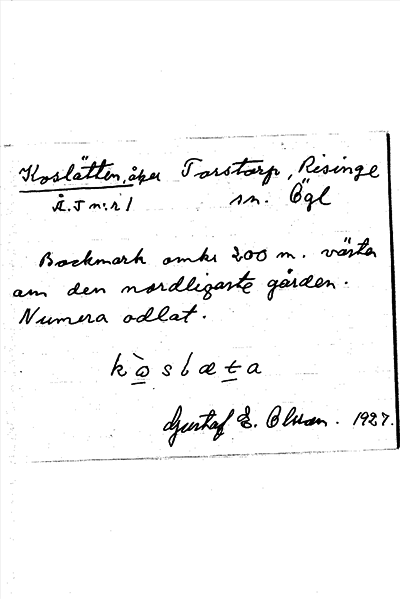 Koslätten, åker Torstorp, Risinge
Å. J n:r 1 sn. Ögl
Backmark omkr 200 m. väster
om den nordligaste gården.
Numera odlat.
kò̲slæt̲a
Gustaf E. Olsson. 1927.